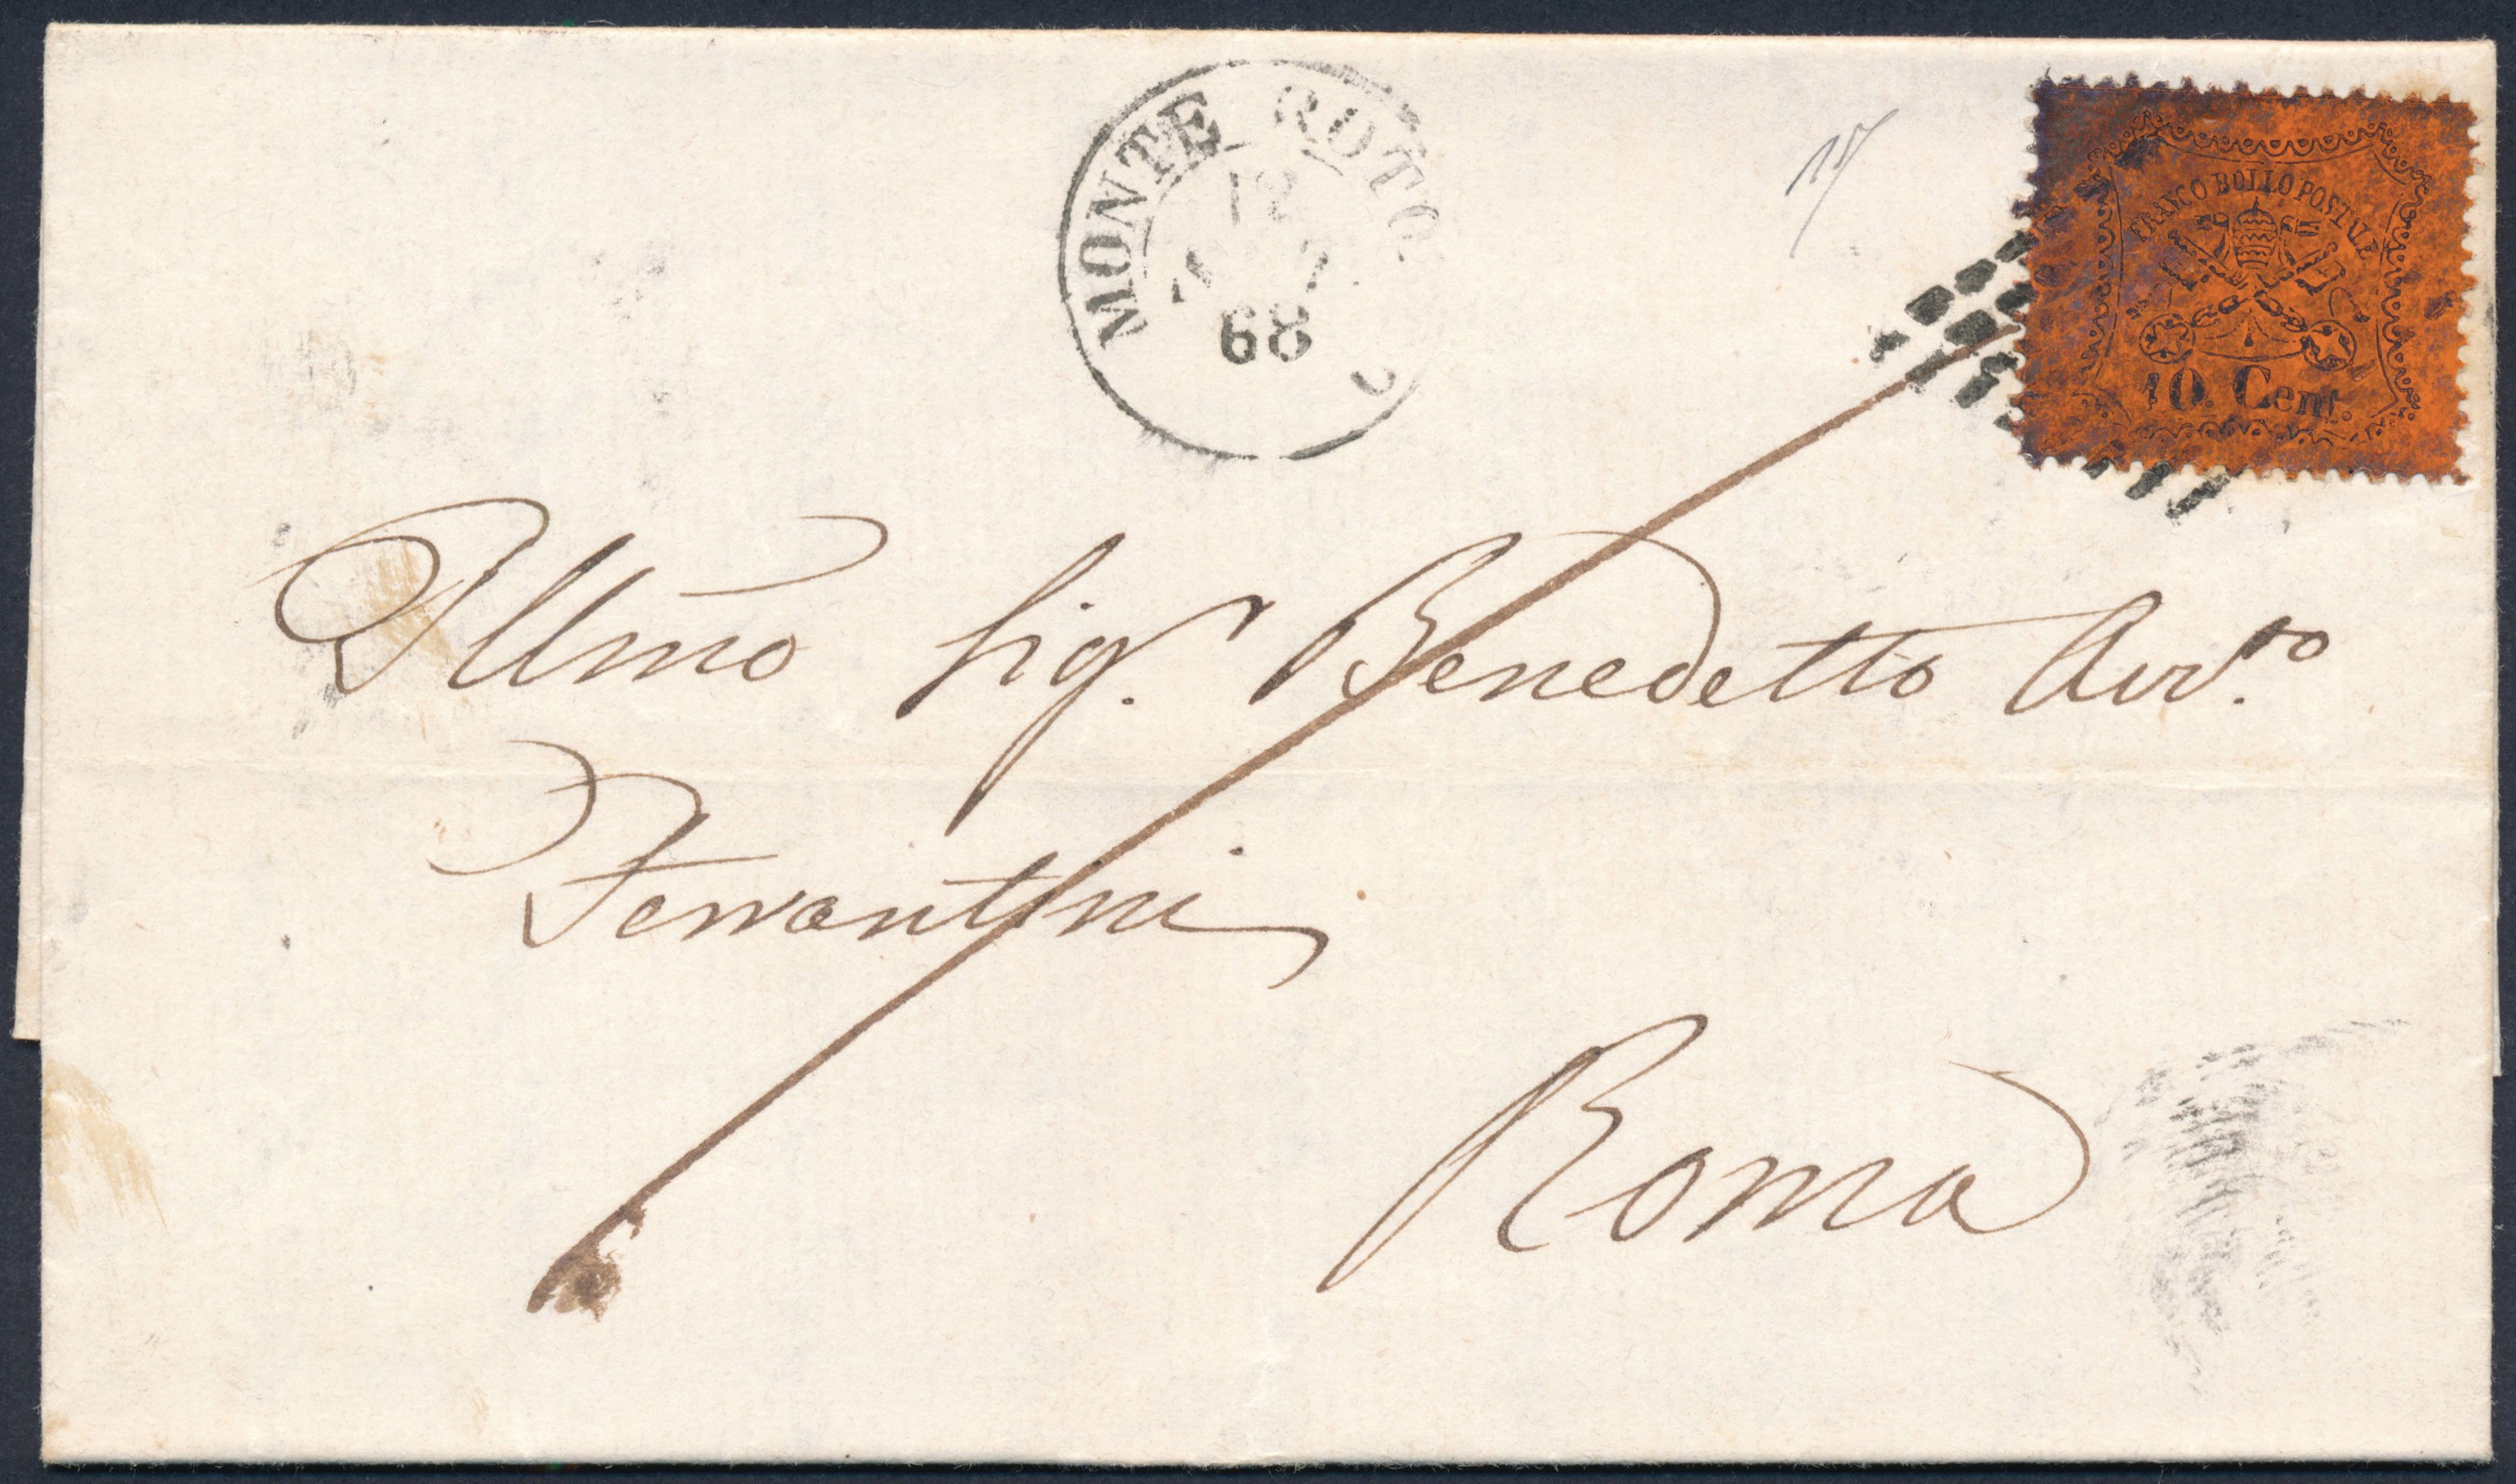 MONTE ROTO
12
68
FRANCO BOLLO POSTALE
10. Cent.
Illmo Sigr. Benedetto Avv.to
Ferrantini
Roma